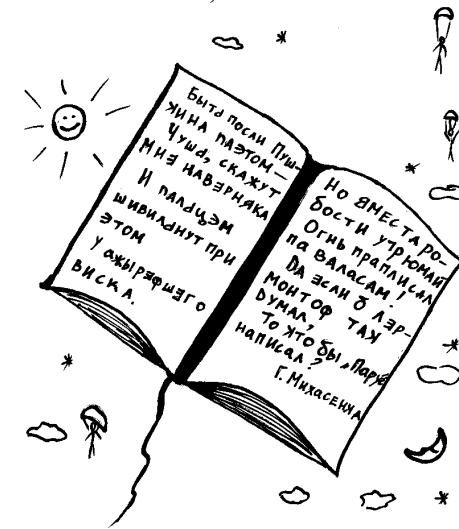 Быть посли Пуш-
кина паэтом —
Чушь, скажут
мне навэрняка
И пальцэм
шивильнут при
этом
у ажырэфшэго
виска.
Но вместа ро-
бости угрюмай
Огнь праплисал
па валасам!
Да эсли б Лэр-
монтоф так
думал,
То хто бы „Парус"
написал?
Г. Михасенка